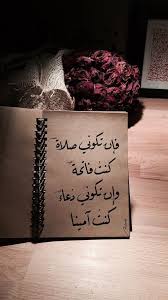 فإن تكوني صلاة
كنت فاتحة
وإن تكوني دعاء
كنت آمينا